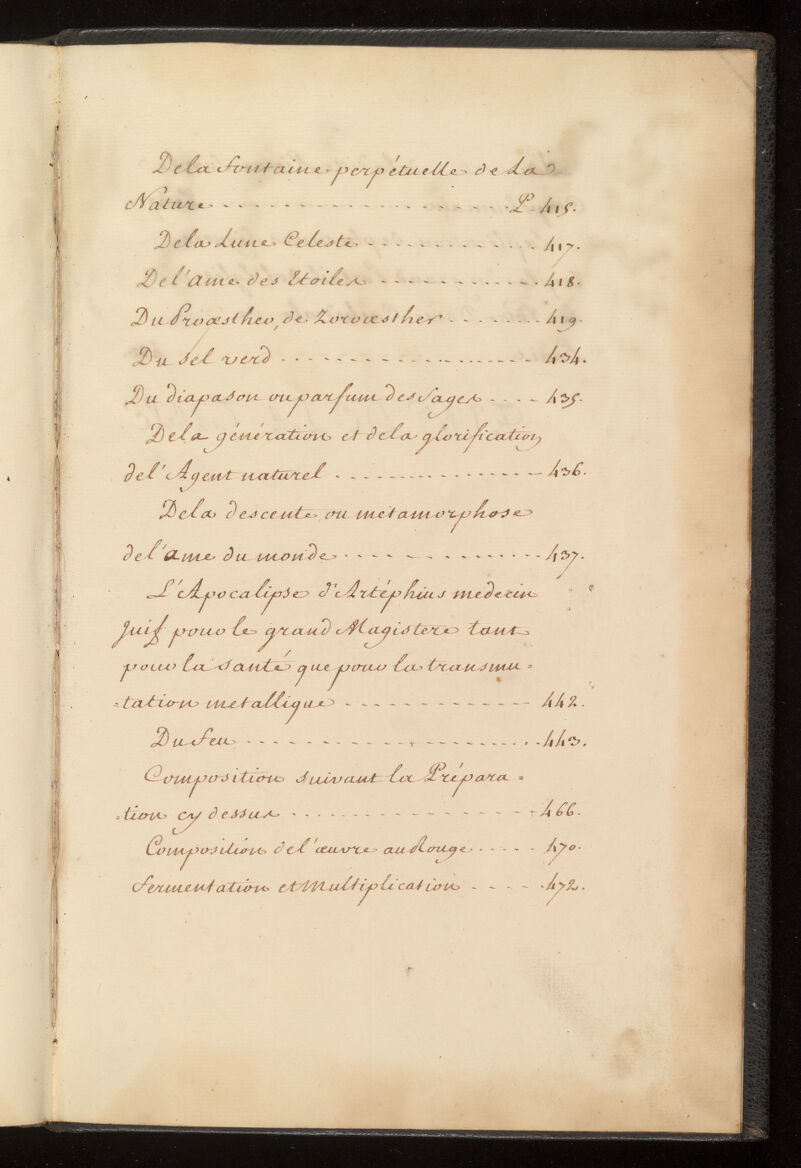 De la fontaine perpétuelle de La
Nature - - - - - - - - - - - - - - - - - - P. 415.
De la Lune Celeste - - - - - - - - - - - 417.
De l'ame des Etoiles - - - - - - - - - - - 418.
Du Proœstheo, de Zoroœsther - - - - - - 419.
Du sel verd - - - - - - - - - - - - - - - - - 434.
Du diapason ou parfum des Sages - - - - 435.
De la génération et de la glorification
de l'Agent naturel - - - - - - - - - - - - - - 436.
De la descente ou métamorphose
de l'ame du monde - - - - - - - - - - - - - 437.
L'Apocalipse d'Artéphius medecin
Juif pour le grand Magistere tant
pour la santé que pour la transmu=
=tation metallique - - - - - - - - - - - - 442.
Du feu - - - - - - - - - - - - - - - - - - - 443.
Composition suivant la Prépara=
=tion cy dessus - - - - - - - - - - - - - - - - 466.
Composition de l'œuvre au Rouge - - - - - 470.
Fermentation et Multiplication - - - - - 472.